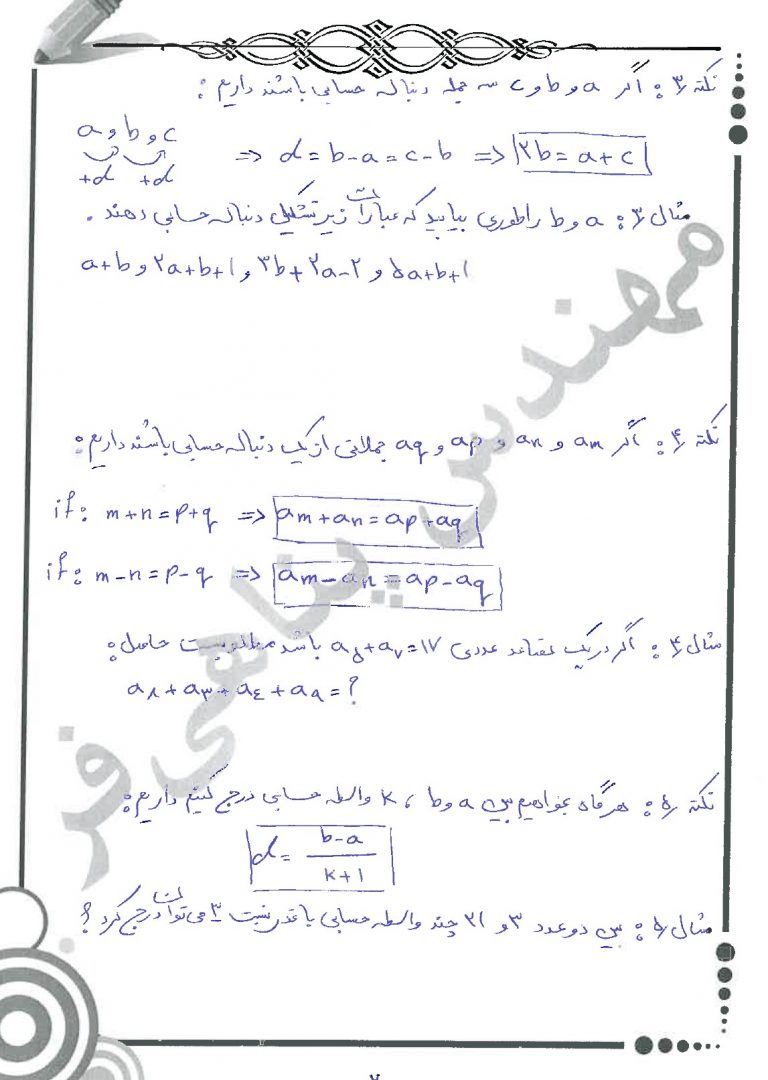 نکته ۳ : اگر a و b و c سه جمله دنباله حسابی باشند داریم :
a و b و c
+d +d
=> d = b-a = c-b => ۲b = a+c
مثال ۳ : a و b را طوری بیابید که عبارات زیر تشکیل دنباله حسابی دهند .
a+b و ۲a+b+۱ و ۳b+۲a-۲ و ۵a+b+۱
نکته ۴ : اگر am و an و ap و aq جملاتی از یک دنباله حسابی باشند داریم :
if: m+n=p+q => am+an=ap+aq
if: m-n=p-q => am-an=ap-aq
مثال ۴ : اگر در یک تصاعد عددی a۵+a۷=۱۷ باشد مطلوبست حاصل :
a۸+a۳+a۴+a۹=?
نکته ۵ : هرگاه بخواهیم بین a و b ، k واسطه حسابی درج کنیم داریم :
d = b-a / k+1
مثال ۵ : بین دو عدد ۳ و ۳۱ چند واسطه حسابی با قدر نسبت می توان درج کرد ؟
مهندس پناهی فر
۷